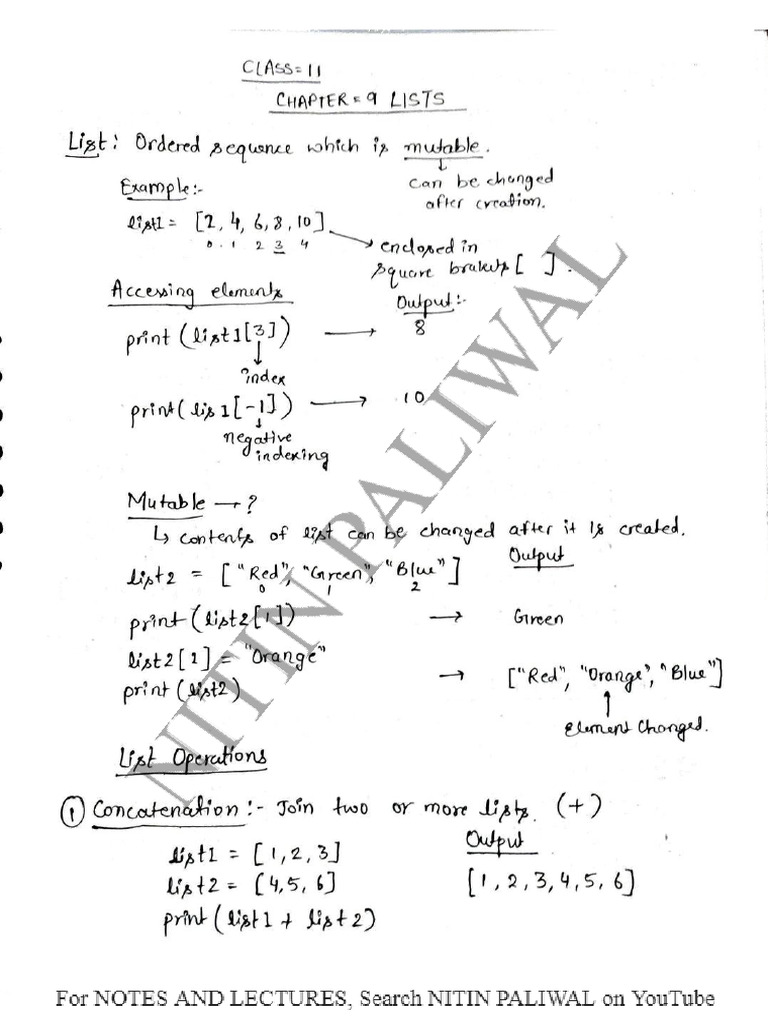 CLASS=11
CHAPTER=9 LISTS
List: Ordered sequence which is mutable.
can be changed
after creation.
Example:-
list1 = [2, 4, 6, 8, 10]
0 1 2 3 4
enclosed in
square brakets [ ].
Accessing elements
Output:-
print (list1[3]) → 8
index
print(lis1[-1]) → 10
negative
indexing
Mutable → ?
↳ contents of list can be changed after it is created.
Output
list2 = ["Red", "Green", "Blue"]
0 1 2
print(list2[1]) → Green
list2[1] = "Orange"
print(list2) → ["Red", "Orange", "Blue"]
Element Changed.
List Operations
① Concatenation:- Join two or more lists. (+)
Output
list1 = [1,2,3]
list2 = [4,5,6] [1,2,3,4,5,6]
print(list1 + list2)
NITIN PALIWAL
For NOTES AND LECTURES, Search NITIN PALIWAL on YouTube